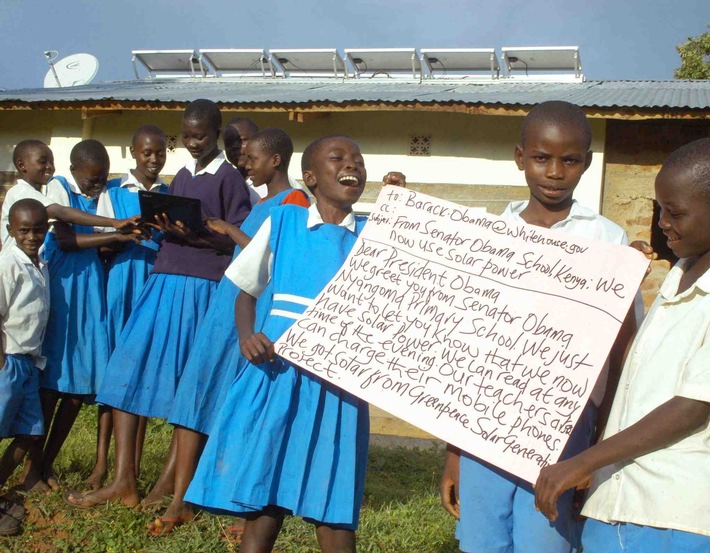 to: Barack.Obama@whitehouse.gov
cc:
Subject: From Senator Obama School, Kenya: We
now use solar power
Dear President Obama
We greet you from Senator Obama
Nyangoma Primary School. We just
want to let you know that we now
have solar power. We can read at any
time of the evening. Our teachers also
can charge their mobile phones.
We got solar from Greenpeace Solar Generation
Project.